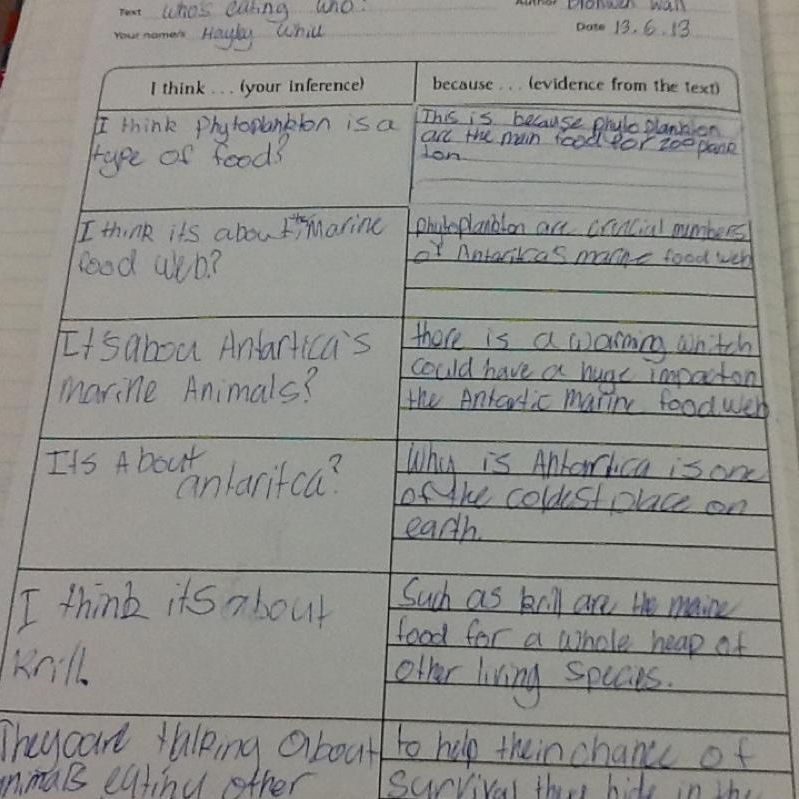 Text Who's eating who?
Author Bronwen Wall
Your name/s Hayley
Date 13.6.13
I think . . . (your inference)
because . . . (evidence from the text)
I think Phytoplankton is a
type of food?
This is because phytoplankton
are the main food for zooplank
ton
I think its about the Marine
food web?
phytoplankton are crucial numbers
of Antaritcas marine food web
It's abou Antartica's
marine Animals?
there is a warning whitch
could have a huge impact on
the Antartic marine food web
Its About
antaritca?
Why is Antartica is one
of the coldest place on
earth.
I think its about
krill.
Such as krill are the maine
food for a whole heap of
other living species.
They are talking about
animals eating other
to help their chance of
survival they hide in the